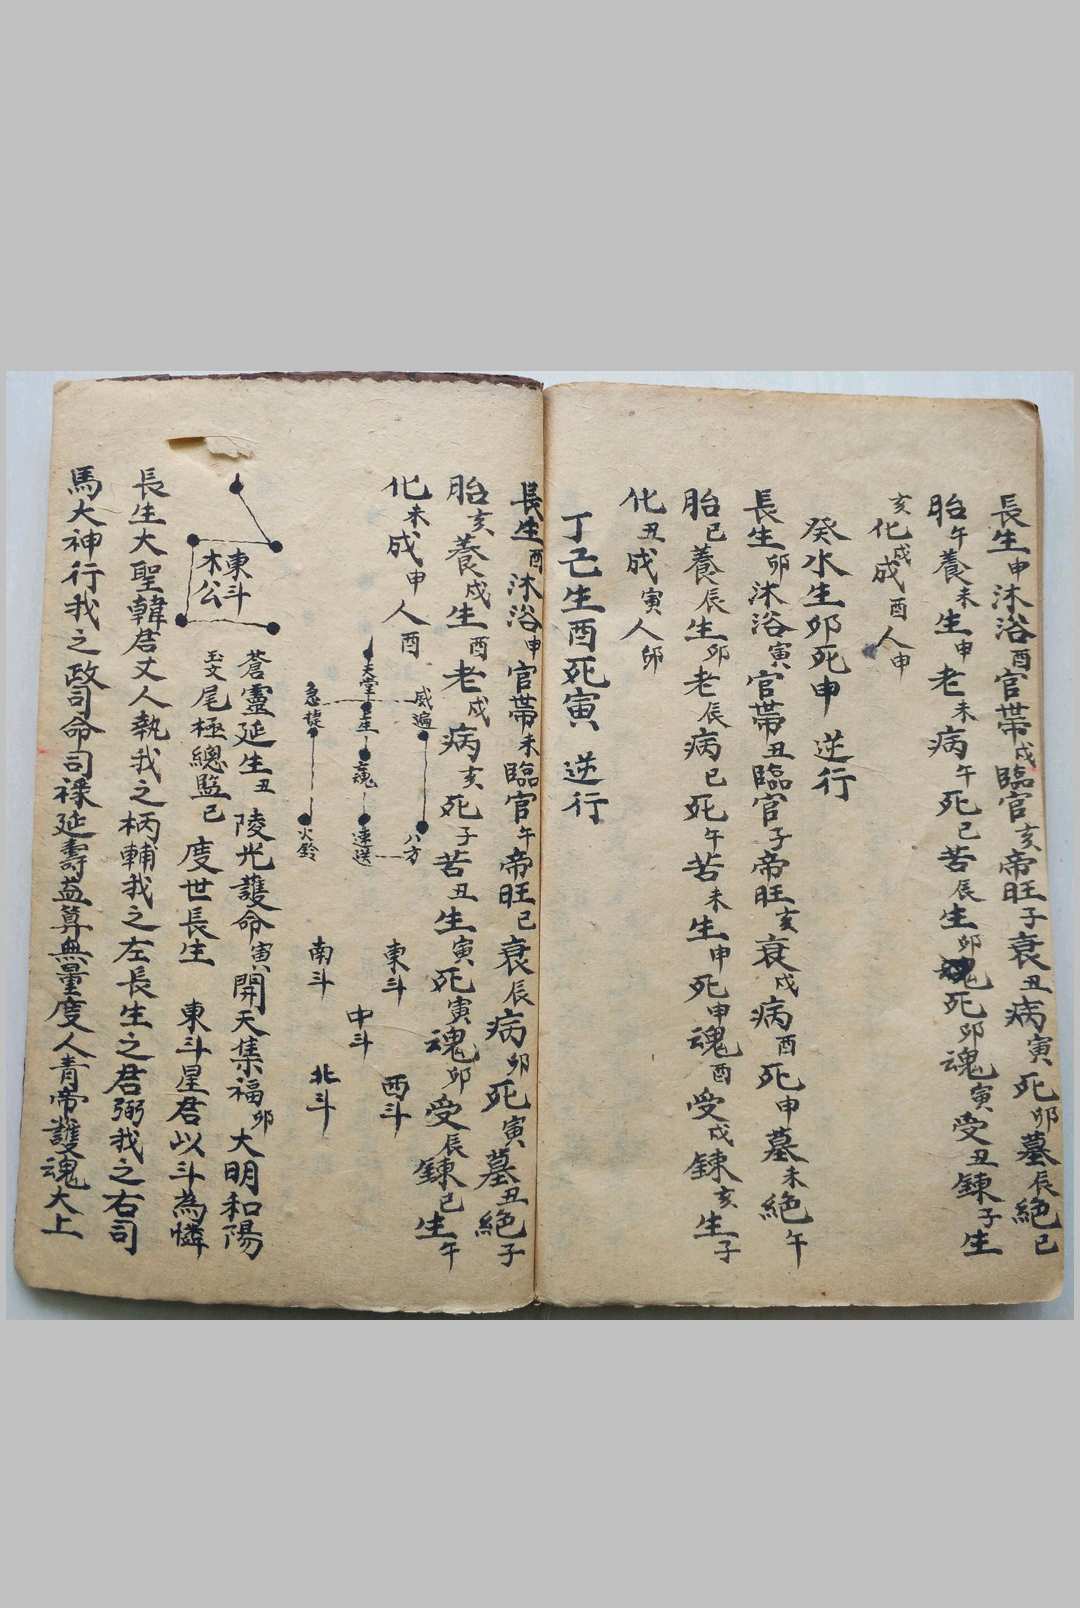 長生申沐浴酉官帶戌臨官亥帝旺子衰丑病寅死卯墓辰絕巳
胎午養未生申老未病午死巳苦辰生卯死卯魂寅受丑鍊子生
亥化戌成酉人申
癸水生卯死申 逆行
長生卯沐浴寅官帶丑臨官子帝旺亥衰戌病酉死申墓未絕午
胎巳養辰生卯老辰病巳死午苦未生申死申魂酉受戌鍊亥生子
化丑成寅人卯
丁己生酉死寅 逆行
長生酉沐浴申官帶未臨官午帝旺巳衰辰病卯死寅墓丑絕子
胎亥養戌生酉老戌病亥死子苦丑生寅死寅魂卯受辰鍊巳生午
化未成申人酉
威遍 八方
天堂 魂 速送
火鈴
東斗 西斗
中斗
南斗 北斗
東斗
木公
蒼靈延生丑 陵光護命寅 開天集福卯 大明和陽
玉文尾極總監巳 度世長生 東斗星君以斗為憐
長生大聖韓君丈人執我之柄輔我之左長生之君弼我之右司
馬大神行我之政司命司祿延壽益算無量度人青帝護魂大上